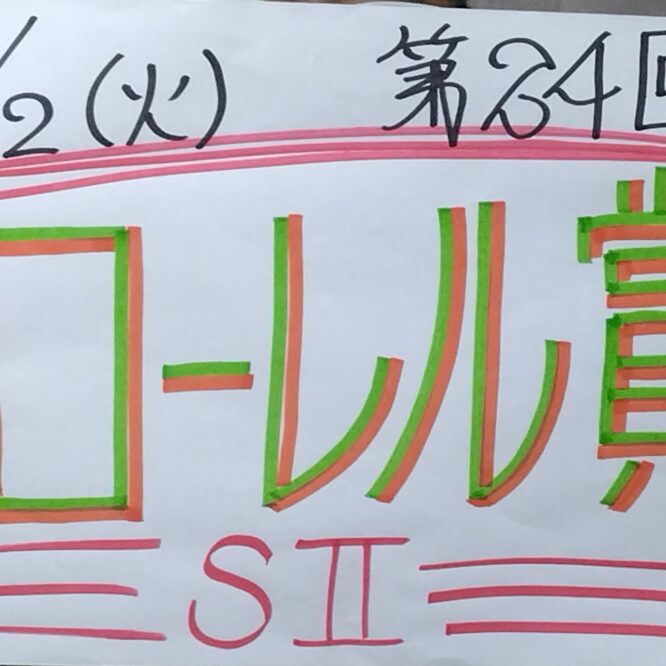 /2(火) 第24回
ローレル賞
SⅡ